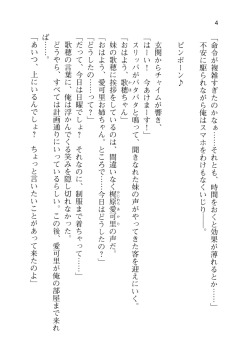 4
「命令が複雑すぎたのかなぁ……それとも、時間をおくと効果が薄れるとか……」
不安に駆られながら俺はスマホをわけもなくいじり――。
ピンポーン♪
玄関からチャイムが響き、
「はーい！　今あけまーす！」
スリッパがパタパタと鳴って、聞きなれた妹の声がやってきた客を迎えにいく。
「おはよう、歌穂ちゃん」
妹の歌穂に挨拶をしているのは、間違いなく梶原愛可里の声だ。
「おはよう、愛可里お姉ちゃん。ところで……今日はどうしたの？」
「どうしたの……って？」
「だって、今日は日曜でしょ？　それなのに、制服まで着ちゃって……」
歌穂の言葉に、俺は浮かんでくる笑みを隠し切れなかった。
どうやら、すべては計画通りにいっているらしい。この後、愛可里が俺の部屋まで来れ
ば……。
「あいつ、上にいるんでしょ？　ちょっと言いたいことがあって来たのよ」